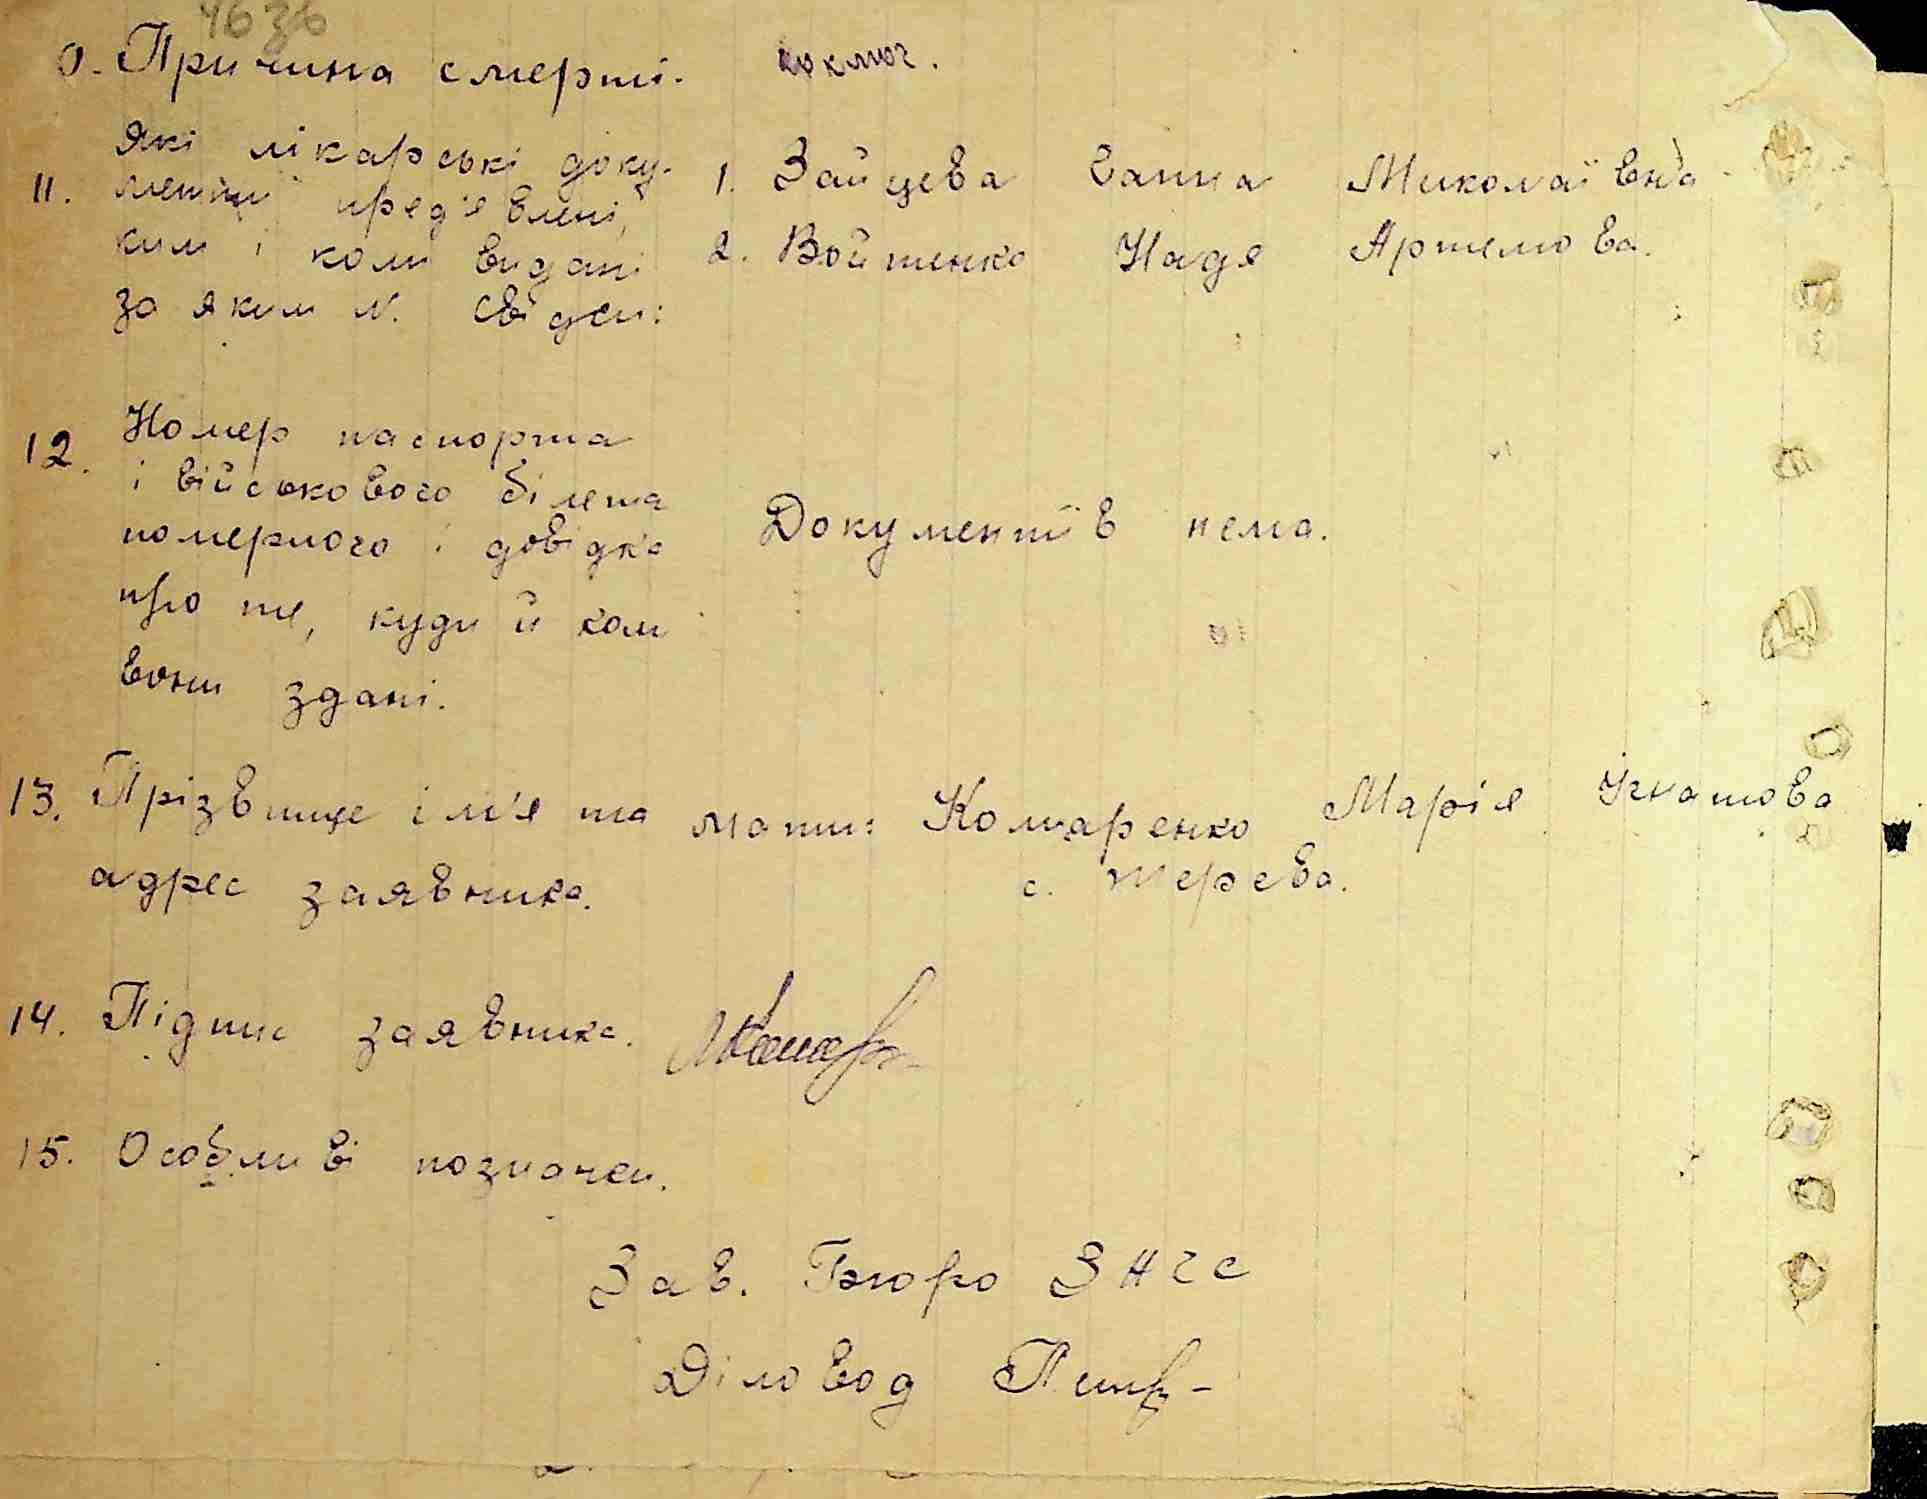 4636
0. Причина смерті. коклюг.
Які лікарські доку-
11. менти пред'явлені,
ким і коли видані
за яким N. Свідки:
1. Зайцева Ганна Миколаївна
2. Войтенко Надя Артемова.
12. Номер паспорта
і військового білета
померлого і довідка
про те, куди й коли
вони здані.
Документів нема.
13. Прізвище ім'я та
адрес заявника.
мати: Комаренко Марія Ігнатова
с.
14. Підпис заявника.
15. Особливі позначки.
Зав. Бюро ЗАГС
Діловод